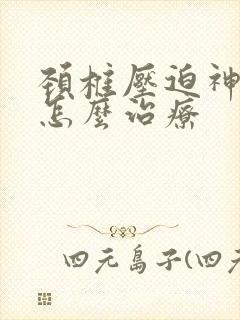 頚椎壓迫神
怎麼治療
四元島子(四元